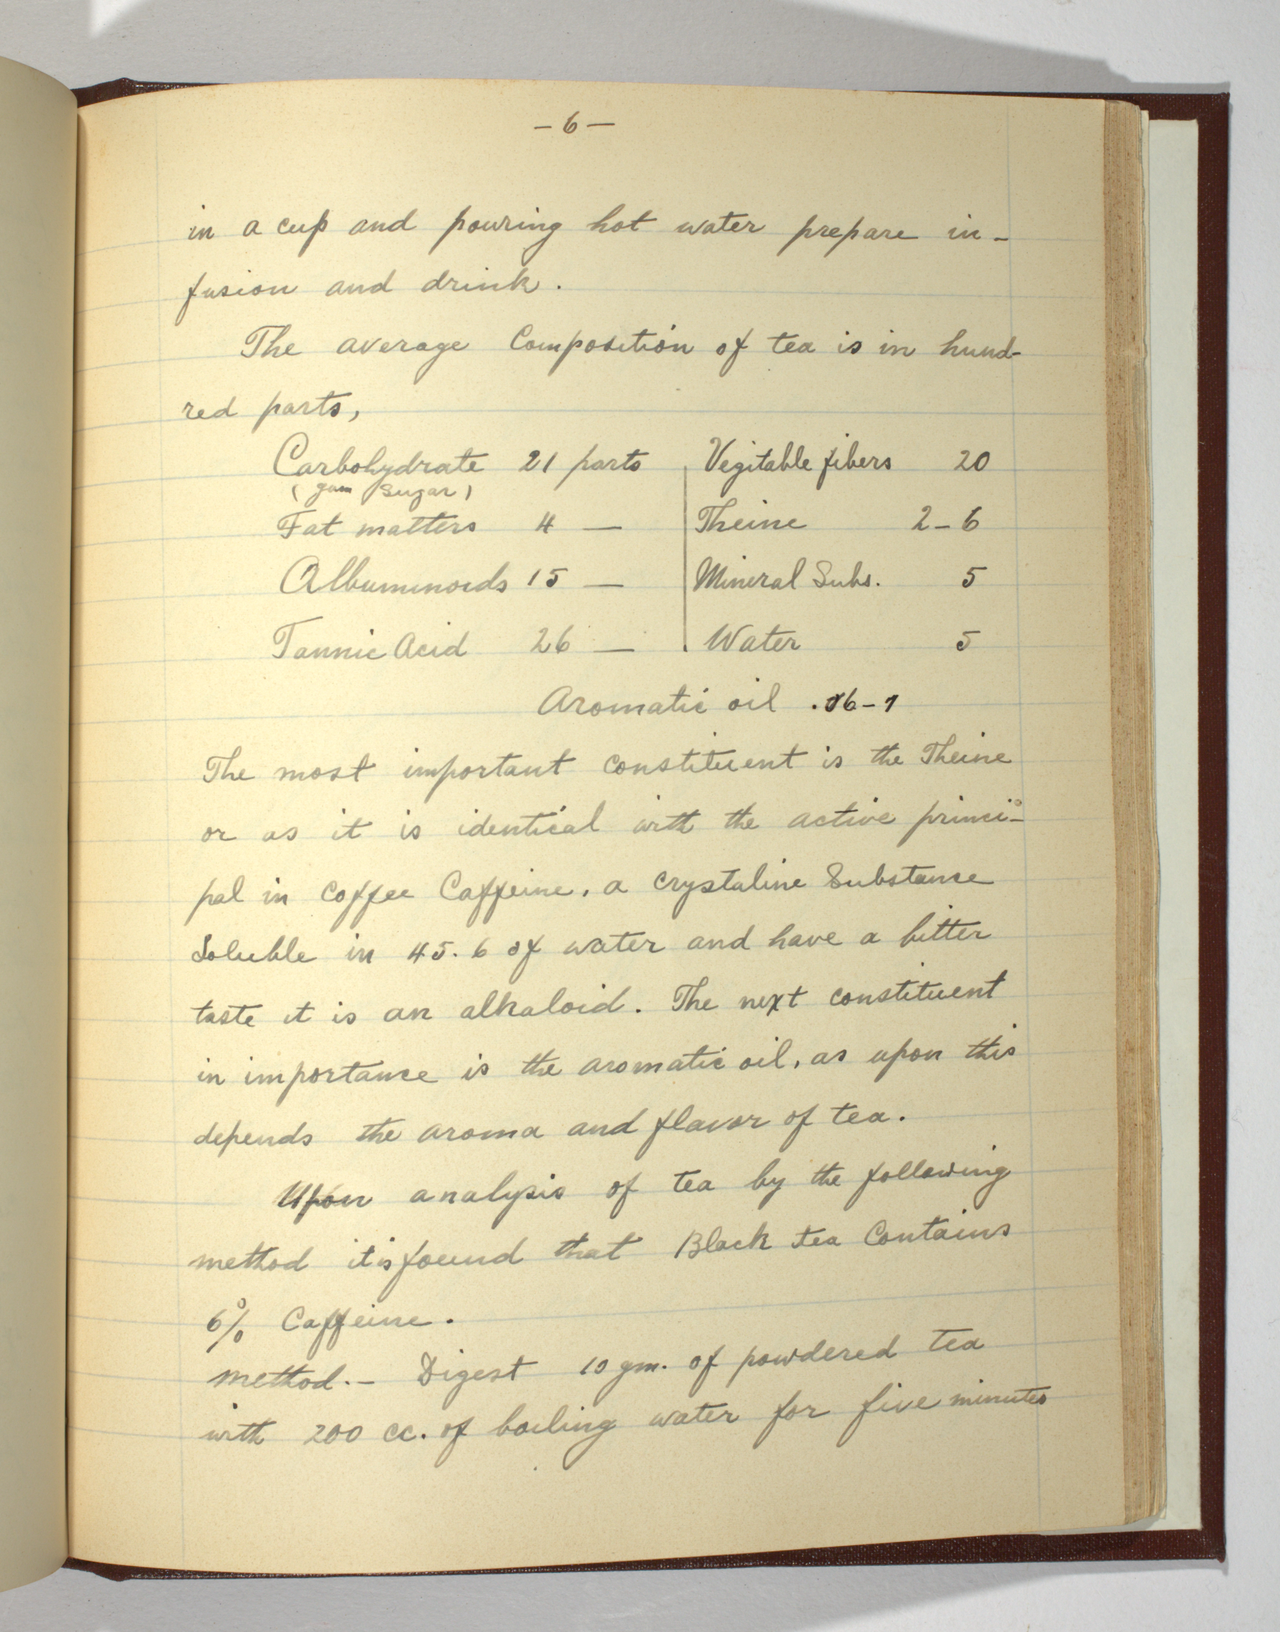 — 6 —
in a cup and pouring hot water prepare in-
fusion and drink.
The average Composition of tea is in hund-
red parts,
Carbohydrate 21 parts Vegitable fibers 20
( gum Sugar )
Fat matters 4 — Theine 2-6
Albuminoids 15 — Mineral Subs. 5
Tannic Acid 26 — Water 5
Aromatic oil .06-1
The most important constituent is the Theine
or as it is identical with the active princi-
pal in Coffee Caffeine, a crystaline Substance
Soluble in 45.6 of water and have a bitter
taste it is an alkaloid. The next constituent
in importance is the aromatic oil, as upon this
depends the aroma and flavor of tea.
Upon analysis of tea by the following
method it is found that Black tea Contains
6% Caffeine.
Method.— Digest 10 gm. of powdered tea
with 200 cc. of boiling water for five minutes